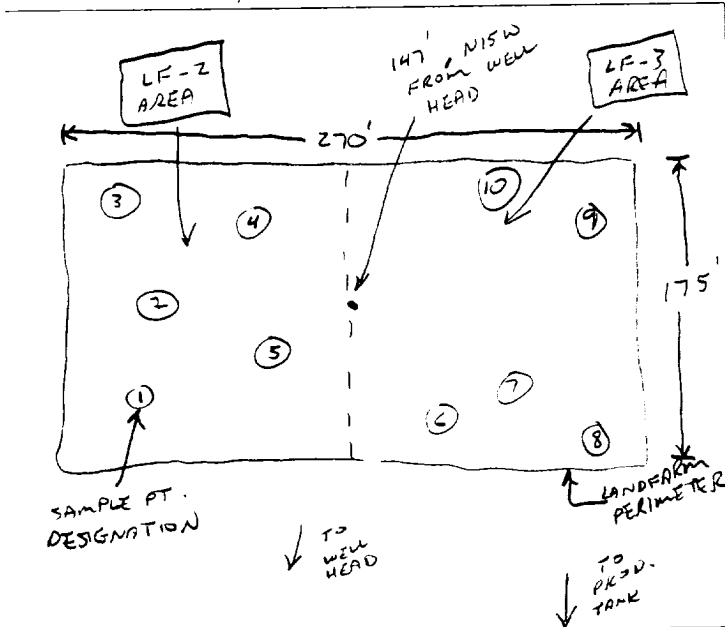 LF-2
AREA
147', N15W
FROM WELL
HEAD
LF-3
AREA
270'
3
4
10
9
2
175'
5
1
7
6
8
SAMPLE PT.
DESIGNATION
LANDFARM
PERIMETER
TO
WELL
HEAD
TO
PROD.
TANK